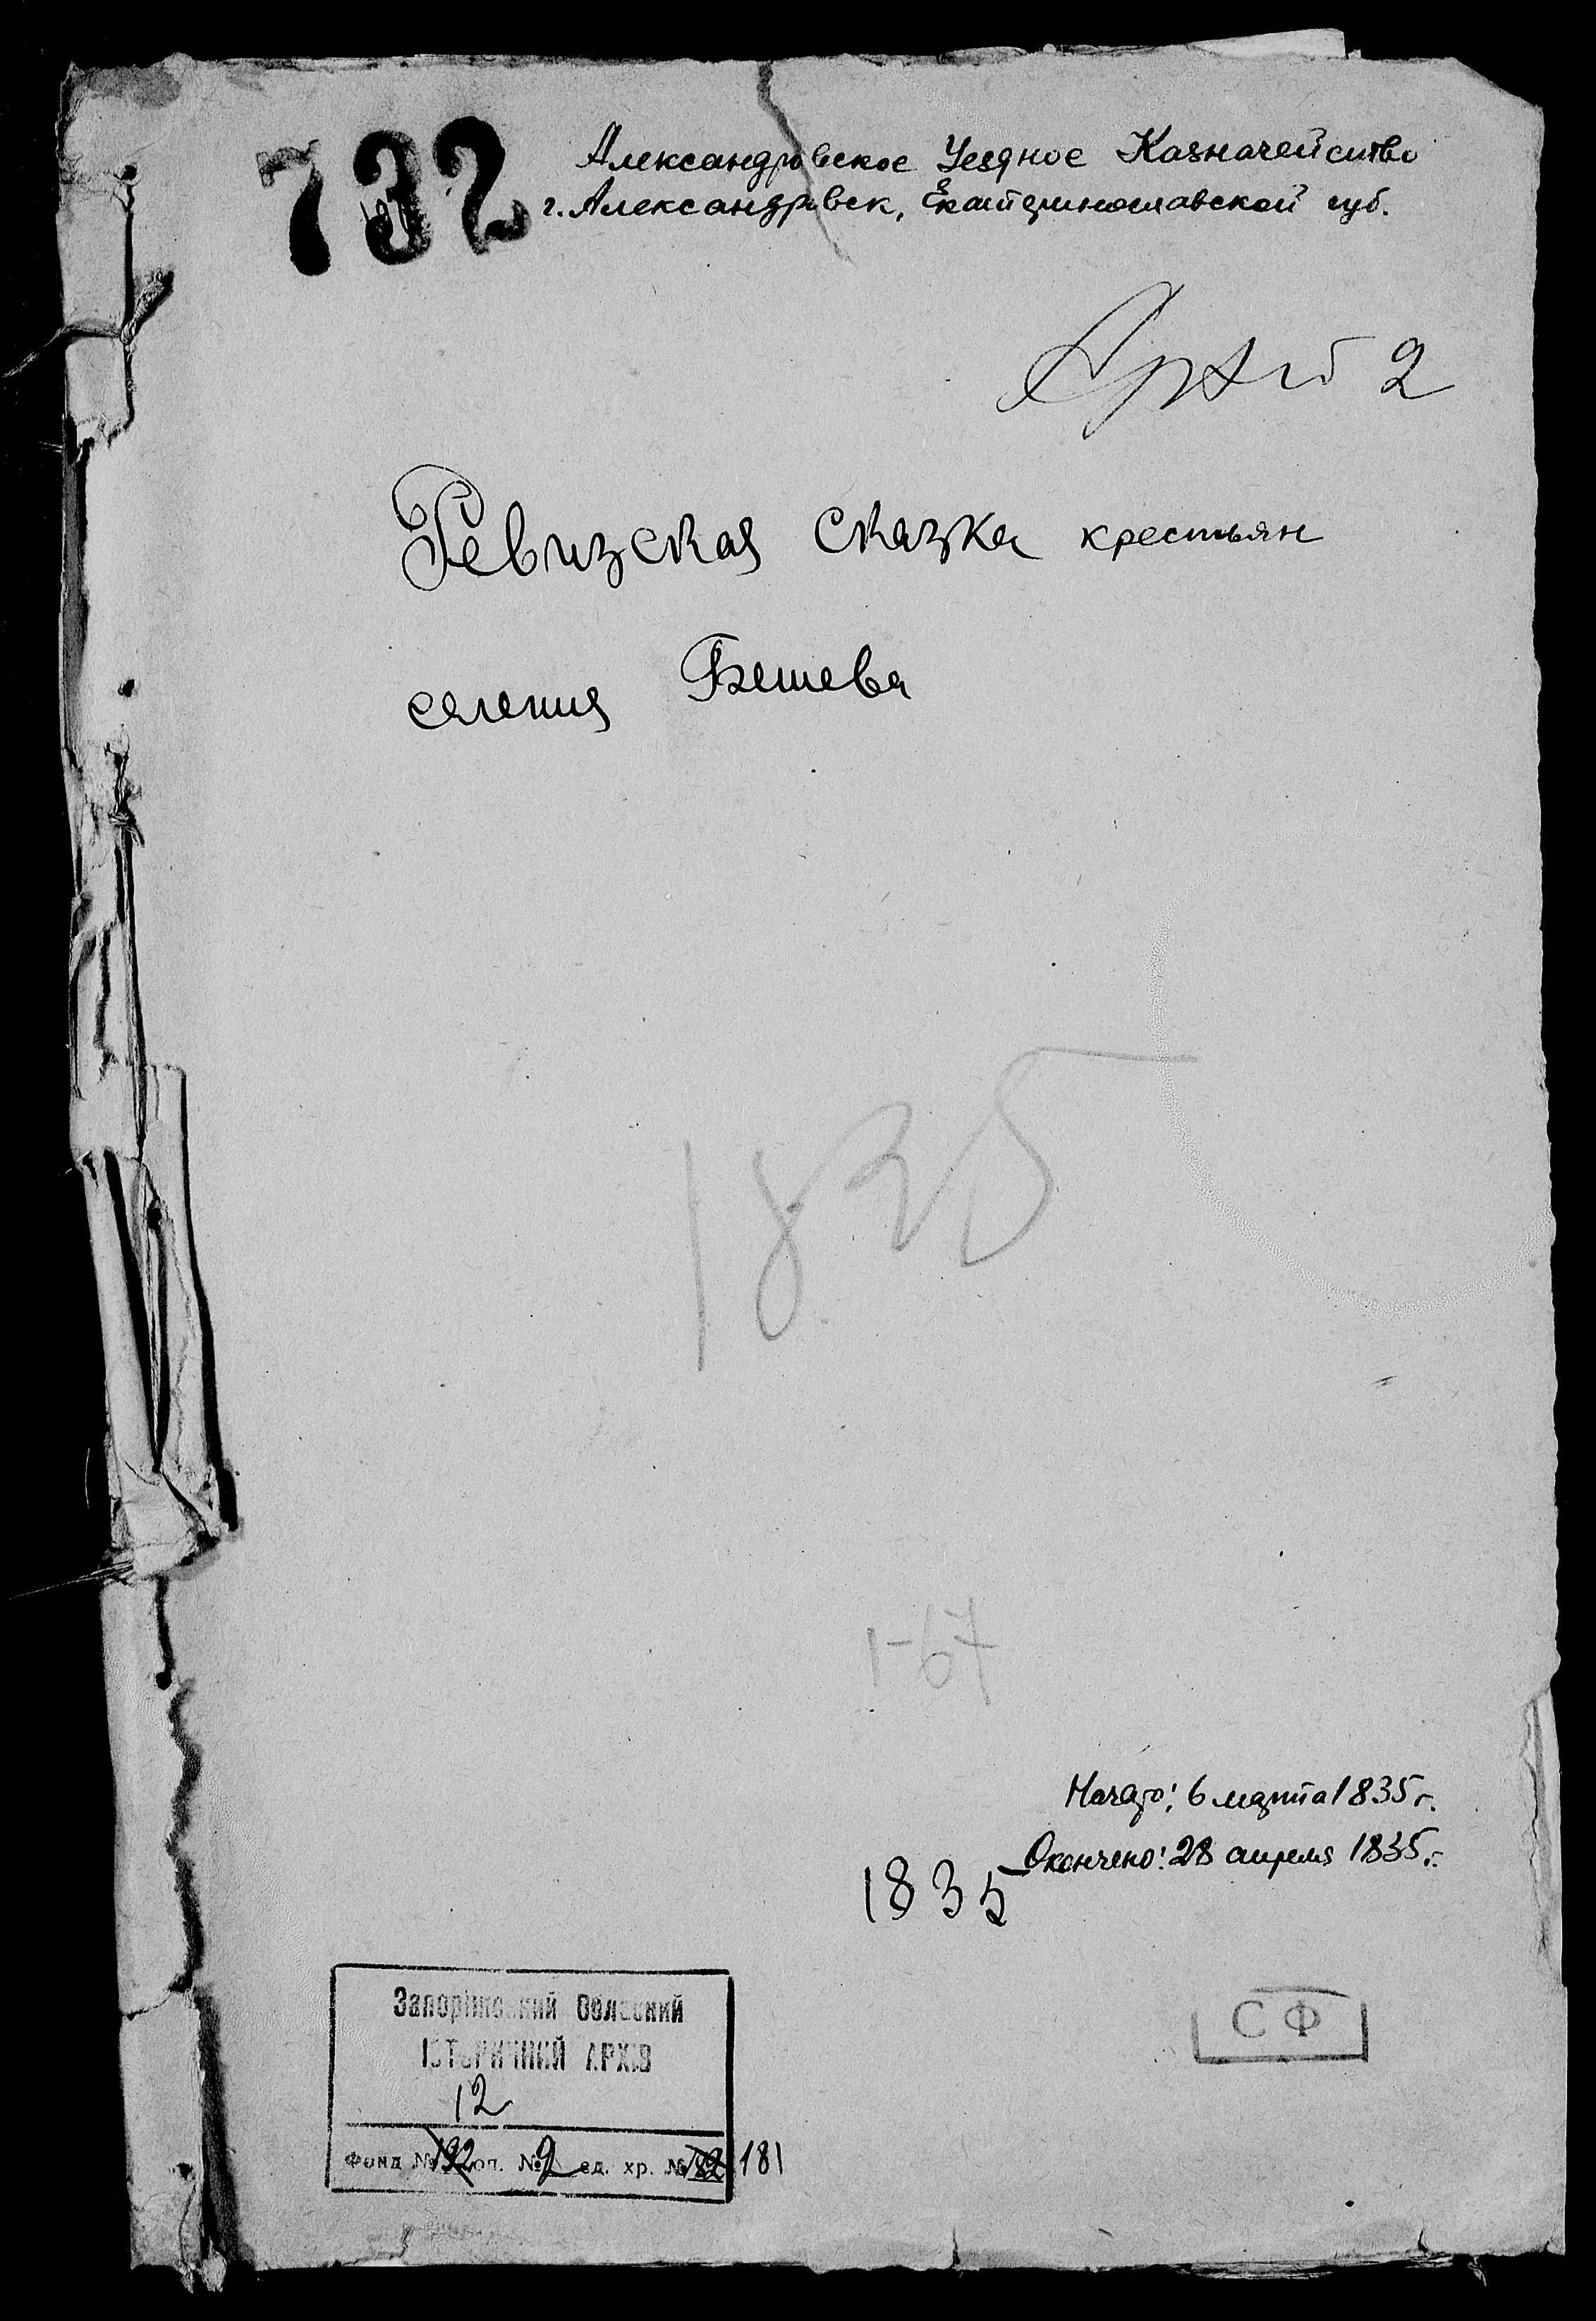 732
Александровское Уездное Казначейство
г. Александровск, Екатеринославской губ.
2
Ревизская сказка крестьян
селения Бешева
1835
1-67
Начато: 6 марта 1835 г.
Окончено: 28 апреля 1835 г.
1835
СФ
Запоріжський Обласний
ІСТОРИЧНИЙ АРХІВ
12
Фонд № 192 оп. № 2 ед. хр. № 182 181